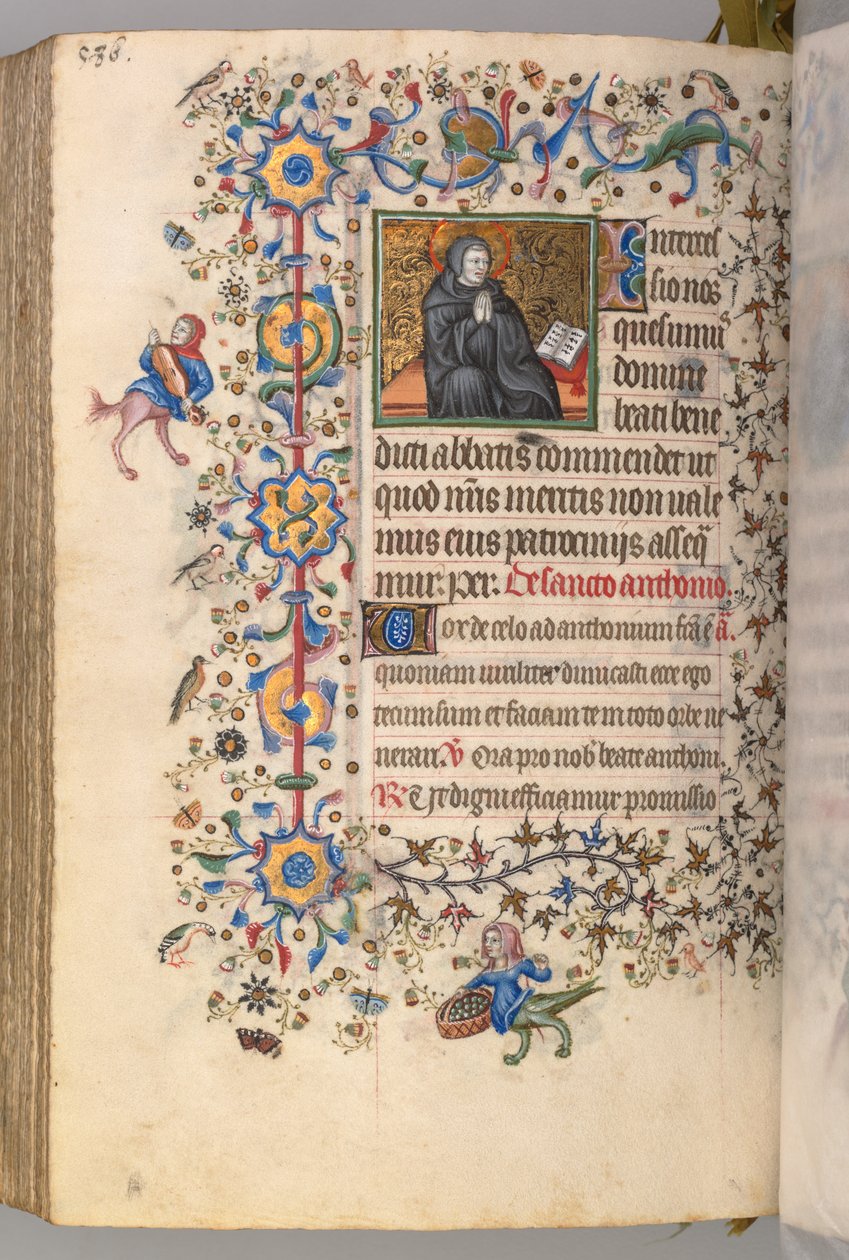 586.
Interces
sio nos
quesumus
domine
beati bene
dicti abbatis commendet ut
quod nr̃is meritis non vale
mus eius patrocinijs asseq̃
mur. per. De sancto anthonio.
Vox de celo ad anthonium fc̃a ẽ a͂.
quoniam viriliter dimicasti ecce ego
tecum sum et faciam te in toto orbe ve
nerari. V̸ Ora pro nob̃ beate anthoni.
R̸ Ut digni efficiamur promissio